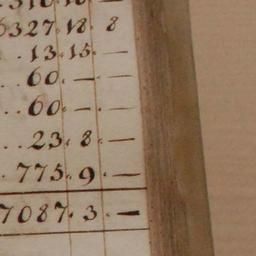 .310.10.
6327.18.8
..13.15.—
..60.—.—
...60.—.—
...23.8.—
.775.9.—
7087.3.—